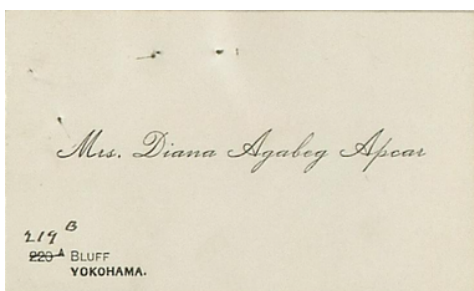 Mrs. Diana Agabeg Apcar
219 B
220 A BLUFF
YOKOHAMA.